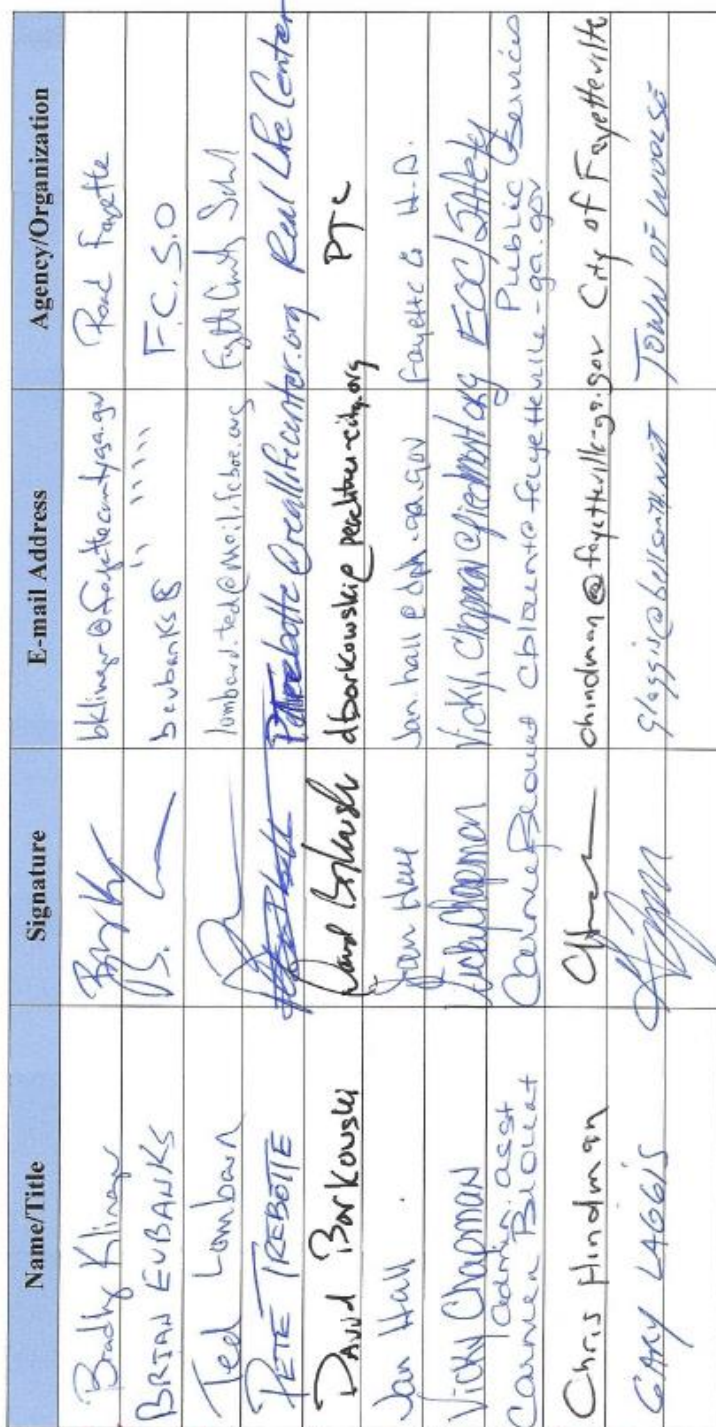 Name/Title Signature E-mail Address Agency/Organization
Bradly Klinger bklinger@fayettecountyga.gov Road Fayette
BRIAN EUBANKS beubanks@ " " " " " F.C.S.O
Ted Lombard lombard.ted@mail.fcboe.org Fytte Cnty Schl
PETE TREBOTTE Ptrebotte@reallifecenter.org Real Life Center
DAVID Borkowski David Borkowski dborkowski@peachtree-city.org PTC
Jan Hall Jan Hall Jan.hall@dph.ga.gov Fayette Co H.D.
Vicky Chapman Vicky Chapman Vicky.Chapman@piedmont.org EOC/Safety
admin. asst Public Services
Carmen Blount Carmen Blount cblount@fayetteville-ga.gov
Chris Hindman chindman@fayetteville-ga.gov City of Fayetteville
GARY LAGGIS glaggis@bellsouth.net TOWN OF WOOLSEY